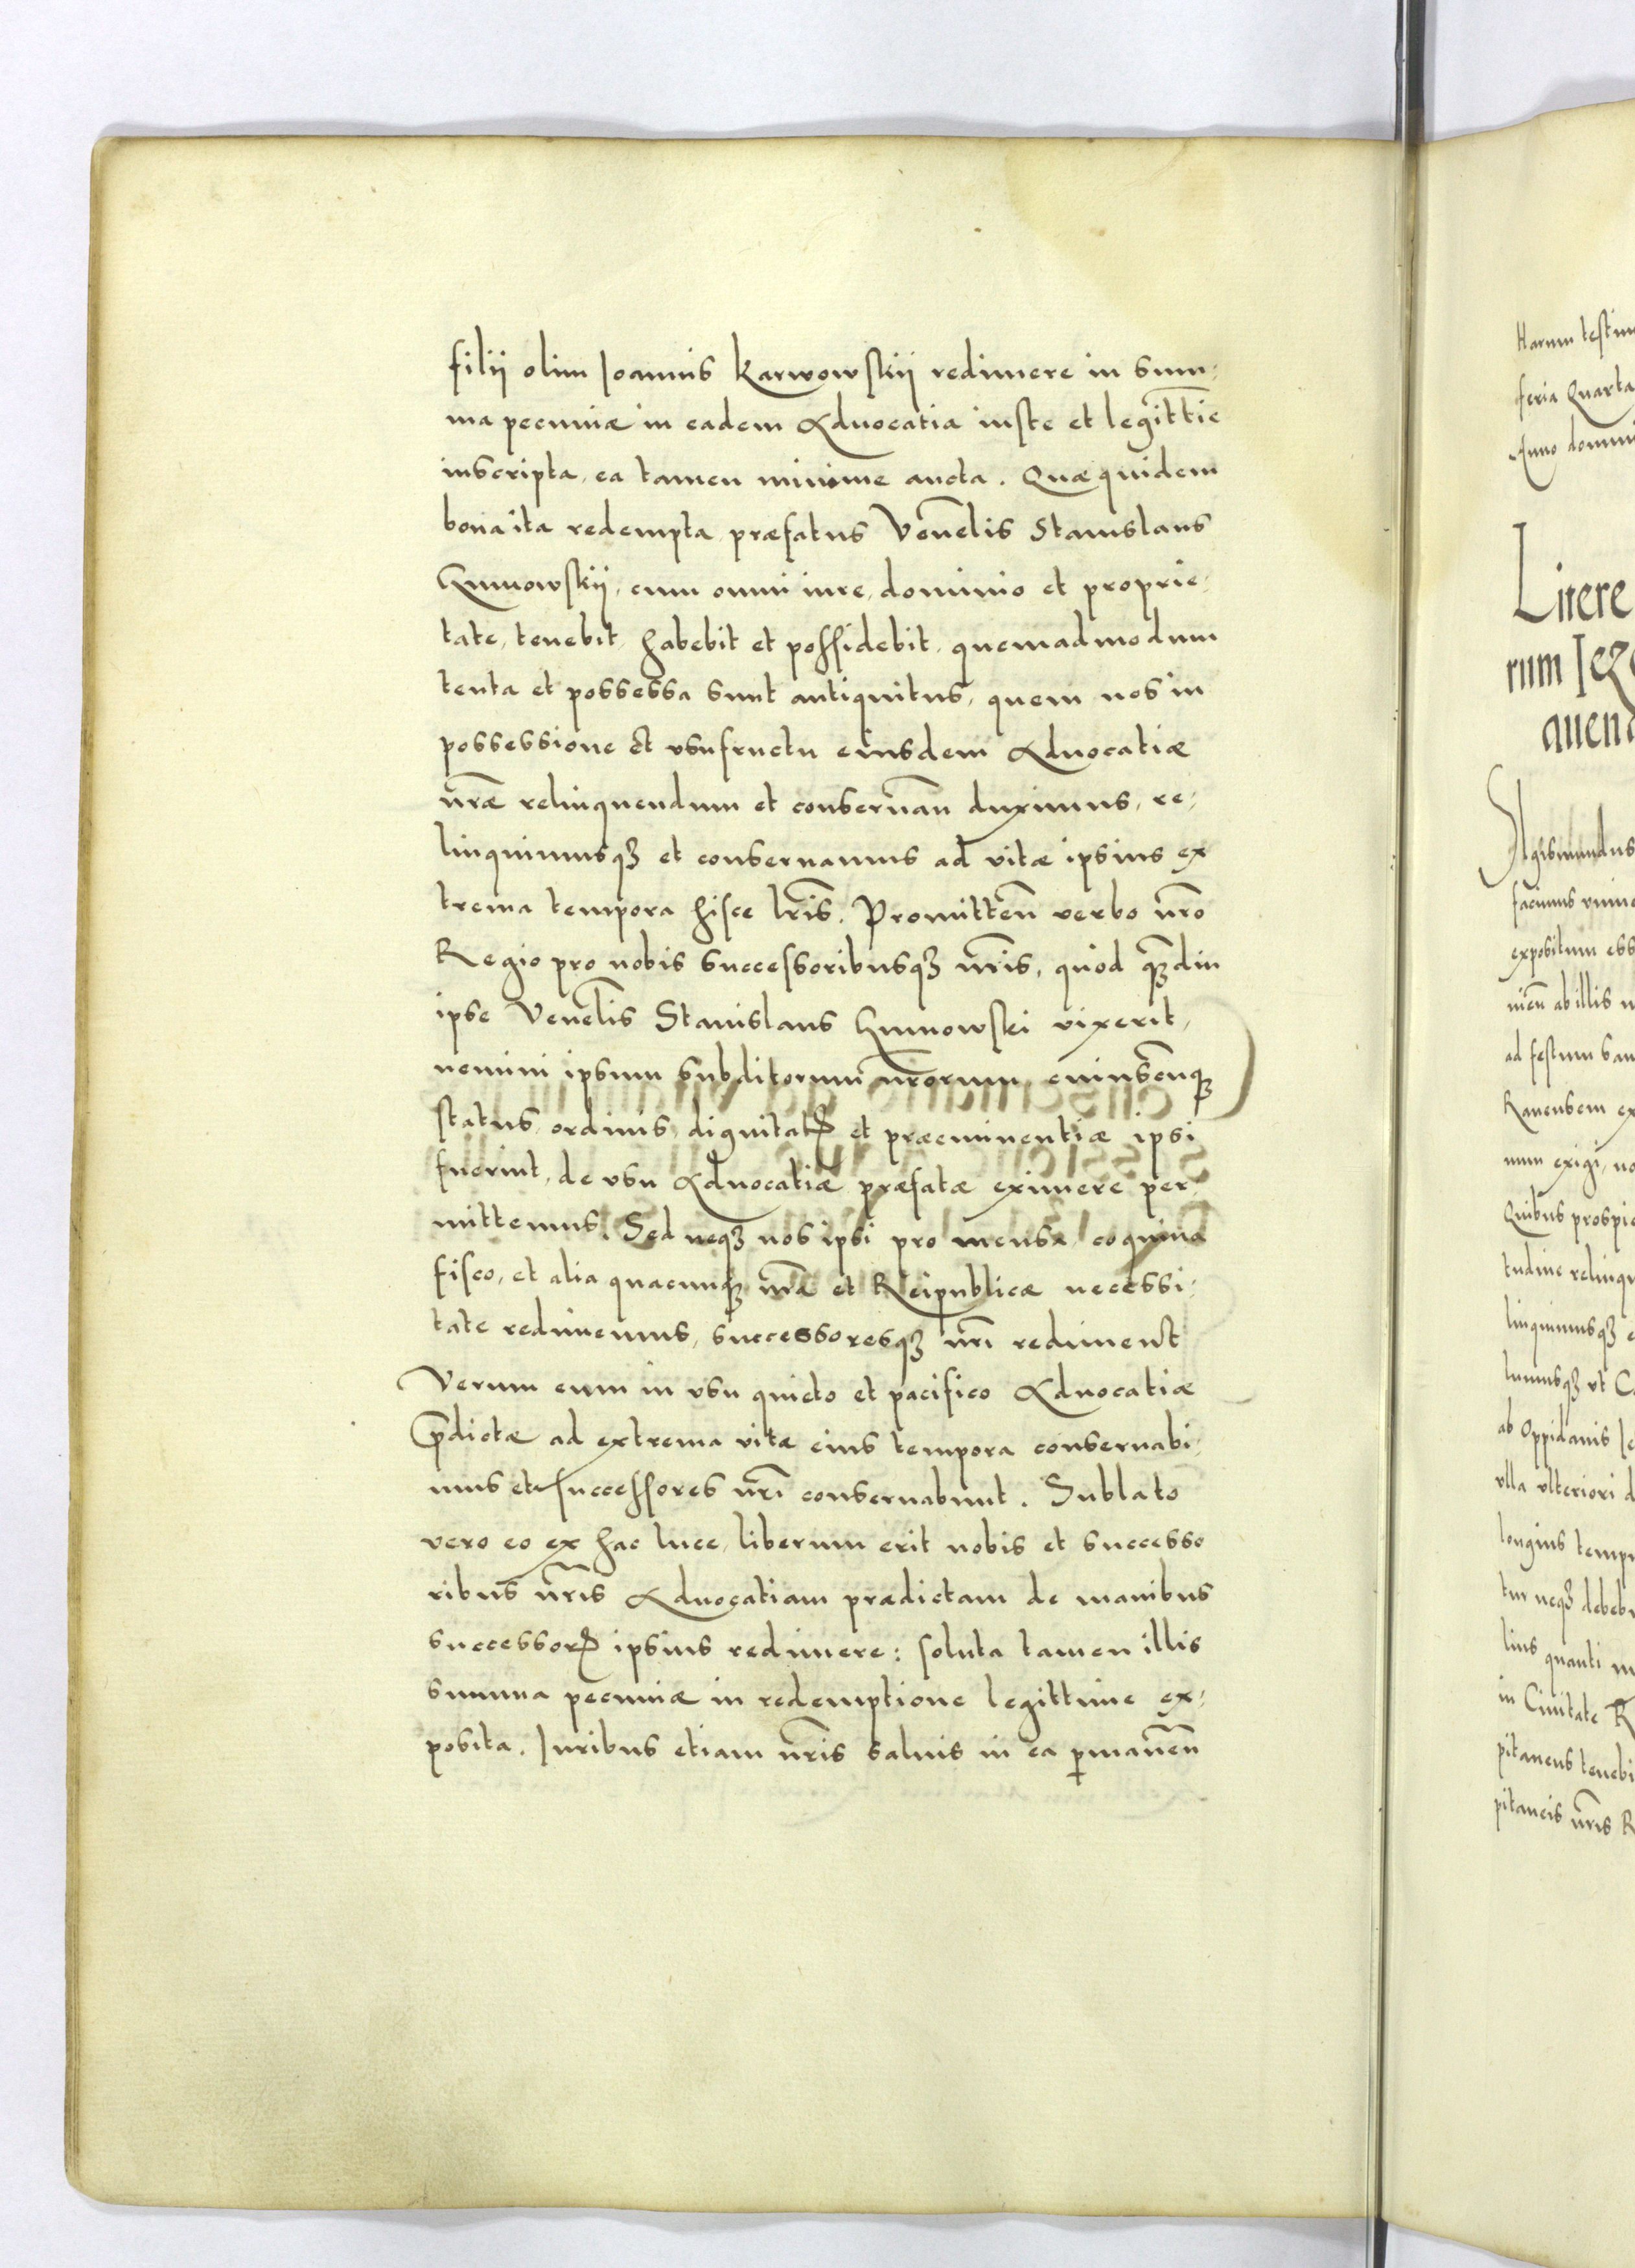 filij olim Joannis Karwowskij redimere in sum¬
ma pecuniæ in eadem Advocatia iuste et legittĩe
inscripta, ea tamen minime aucta. Quæ quidem
bona ita redempta præfatus Venẽlis Stanislaus
Hynnowskij, cum omni iure, dominio et proprie¬
tate, tenebit, habebit et possidebit, quemadmodum
tenta et possessa sunt antiquitus, quem nos in
possessione et vsufructu eiusdem Advocatiæ
nr̃æ relinquendum et conservan̄ duximus, re¬
linquimusqꝫ et conservamus ad vitæ ipsius ex
trema tempora hisce lr̃is. Promitteñ verbo nr̃o
Regio pro nobis successoribusqꝫ nr̃is, quod qꝫdiu
ipse Venẽlis Stanislaus Hynnowski vixerit,
nemini ipsum subditorum nr̃orum cuiuscunqꝫ
status, ordinis, dignitatꝭ et præeminentiæ ipsi
fuerint, de vsu Advocatiæ præfatæ eximere per¬
mittemus. Sed neqꝫ nos ipsi pro mensa, coquina
fisco, et alia quacunqꝫ nr̃a et Reipublicæ necessi¬
tate redimemus, successoresqꝫ nr̃i rediment
Verum eum in vsu quieto et pacifico Advocatiæ
p̃dictæ ad extrema vitæ eius tempora conservabi¬
mus et successores nr̃i conservabunt. Sublato
vero eo ex hac luce, liberum erit nobis et successo
ribus nr̃is Advocatiam prædictam de manibus
successorꝝ ipsius redimere: soluta tamen illis
summa pecuniæ in redemptione legittime ex¬
posita. Juribus etiam nr̃is salvis in ea ꝑmaneñ
Harum testim
feria Quarta
Anno domini
Litere
rum Jez
auen
Sigismundus
facimus
expositum ess
ab illis
ad festum san
Ravensem ex
num exigi, no
Quibus prospic
tudine relinqu
linquimusqꝫ e
lumusqꝫ vt Ca
ab Oppidanis Je
vlla vlteriori d
longius tempu
tur neqꝫ debebu
lius quanti
in Civitate R
pitaneus tenebi
pitaneis nr̃is R